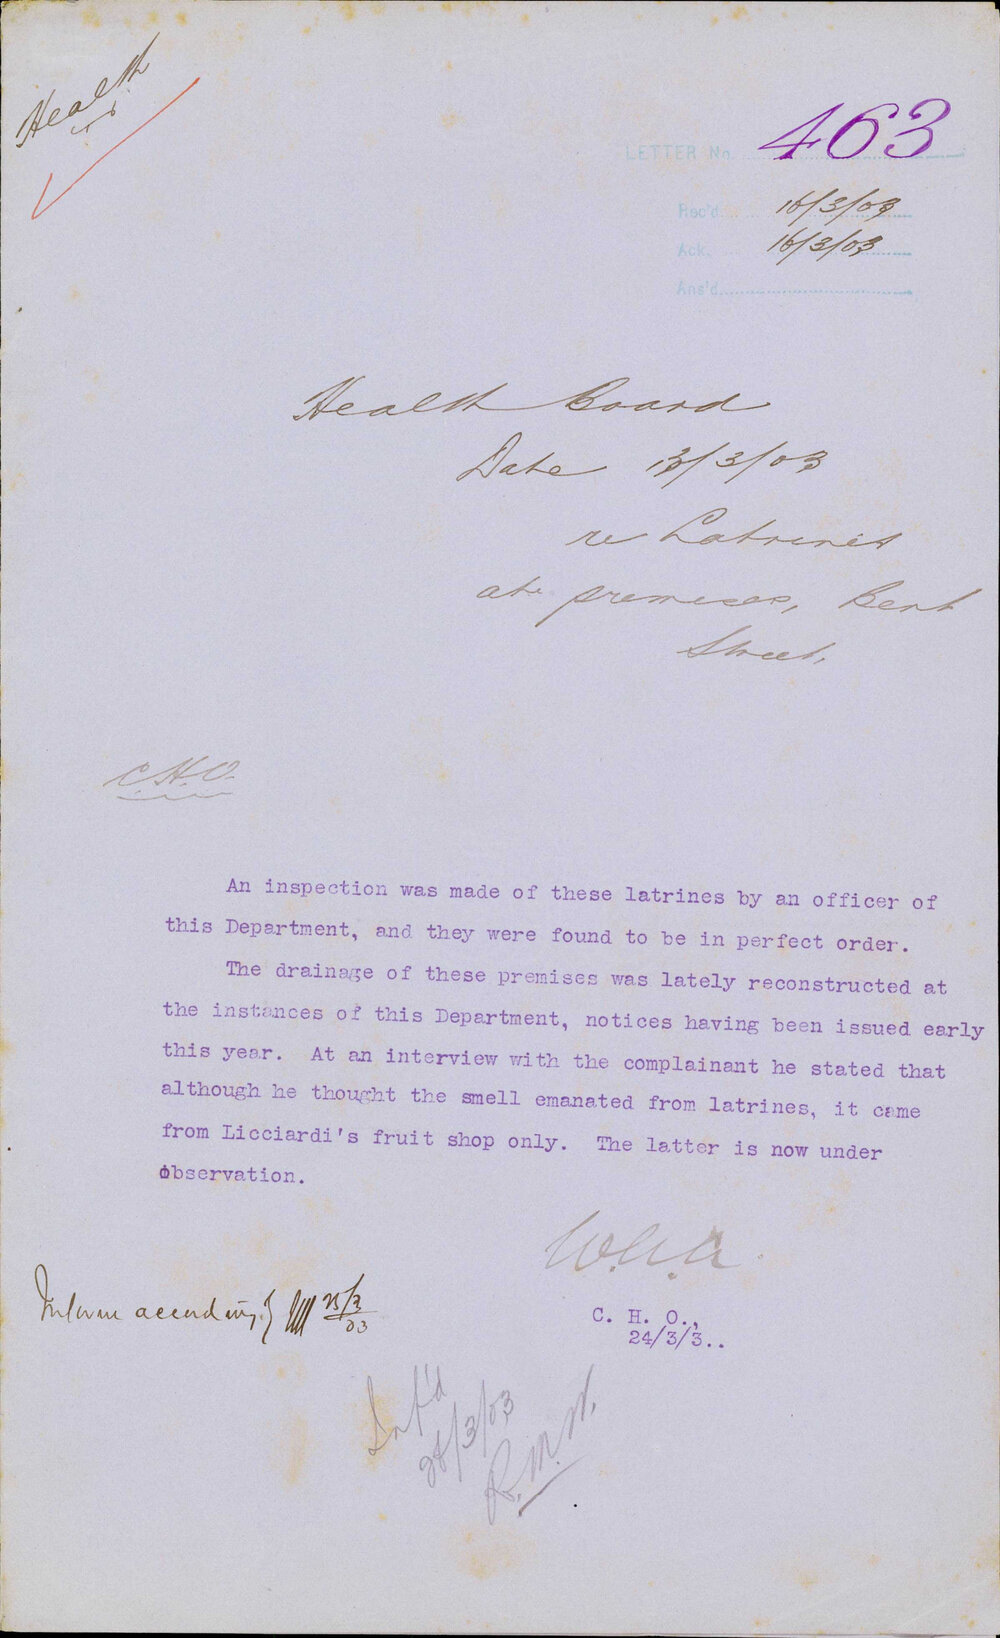 Health
LETTER No. 463
Rec'd. 16/3/03
Ack. 16/3/03
Ans'd.
Health Board
Date 13/3/03
re Latrines
at premises, Bent
Street.
C.H.O.
An inspection was made of these latrines by an officer of
this Department, and they were found to be in perfect order.
The drainage of these premises was lately reconstructed at
the instances of this Department, notices having been issued early
this year. At an interview with the complainant he stated that
although he thought the smell emanated from latrines, it came
from Licciardi's fruit shop only. The latter is now under
observation.
C. H. O.,
24/3/3..
Inform accordingly 25/3/03
Inf'd
28/3/03
R.M.W.